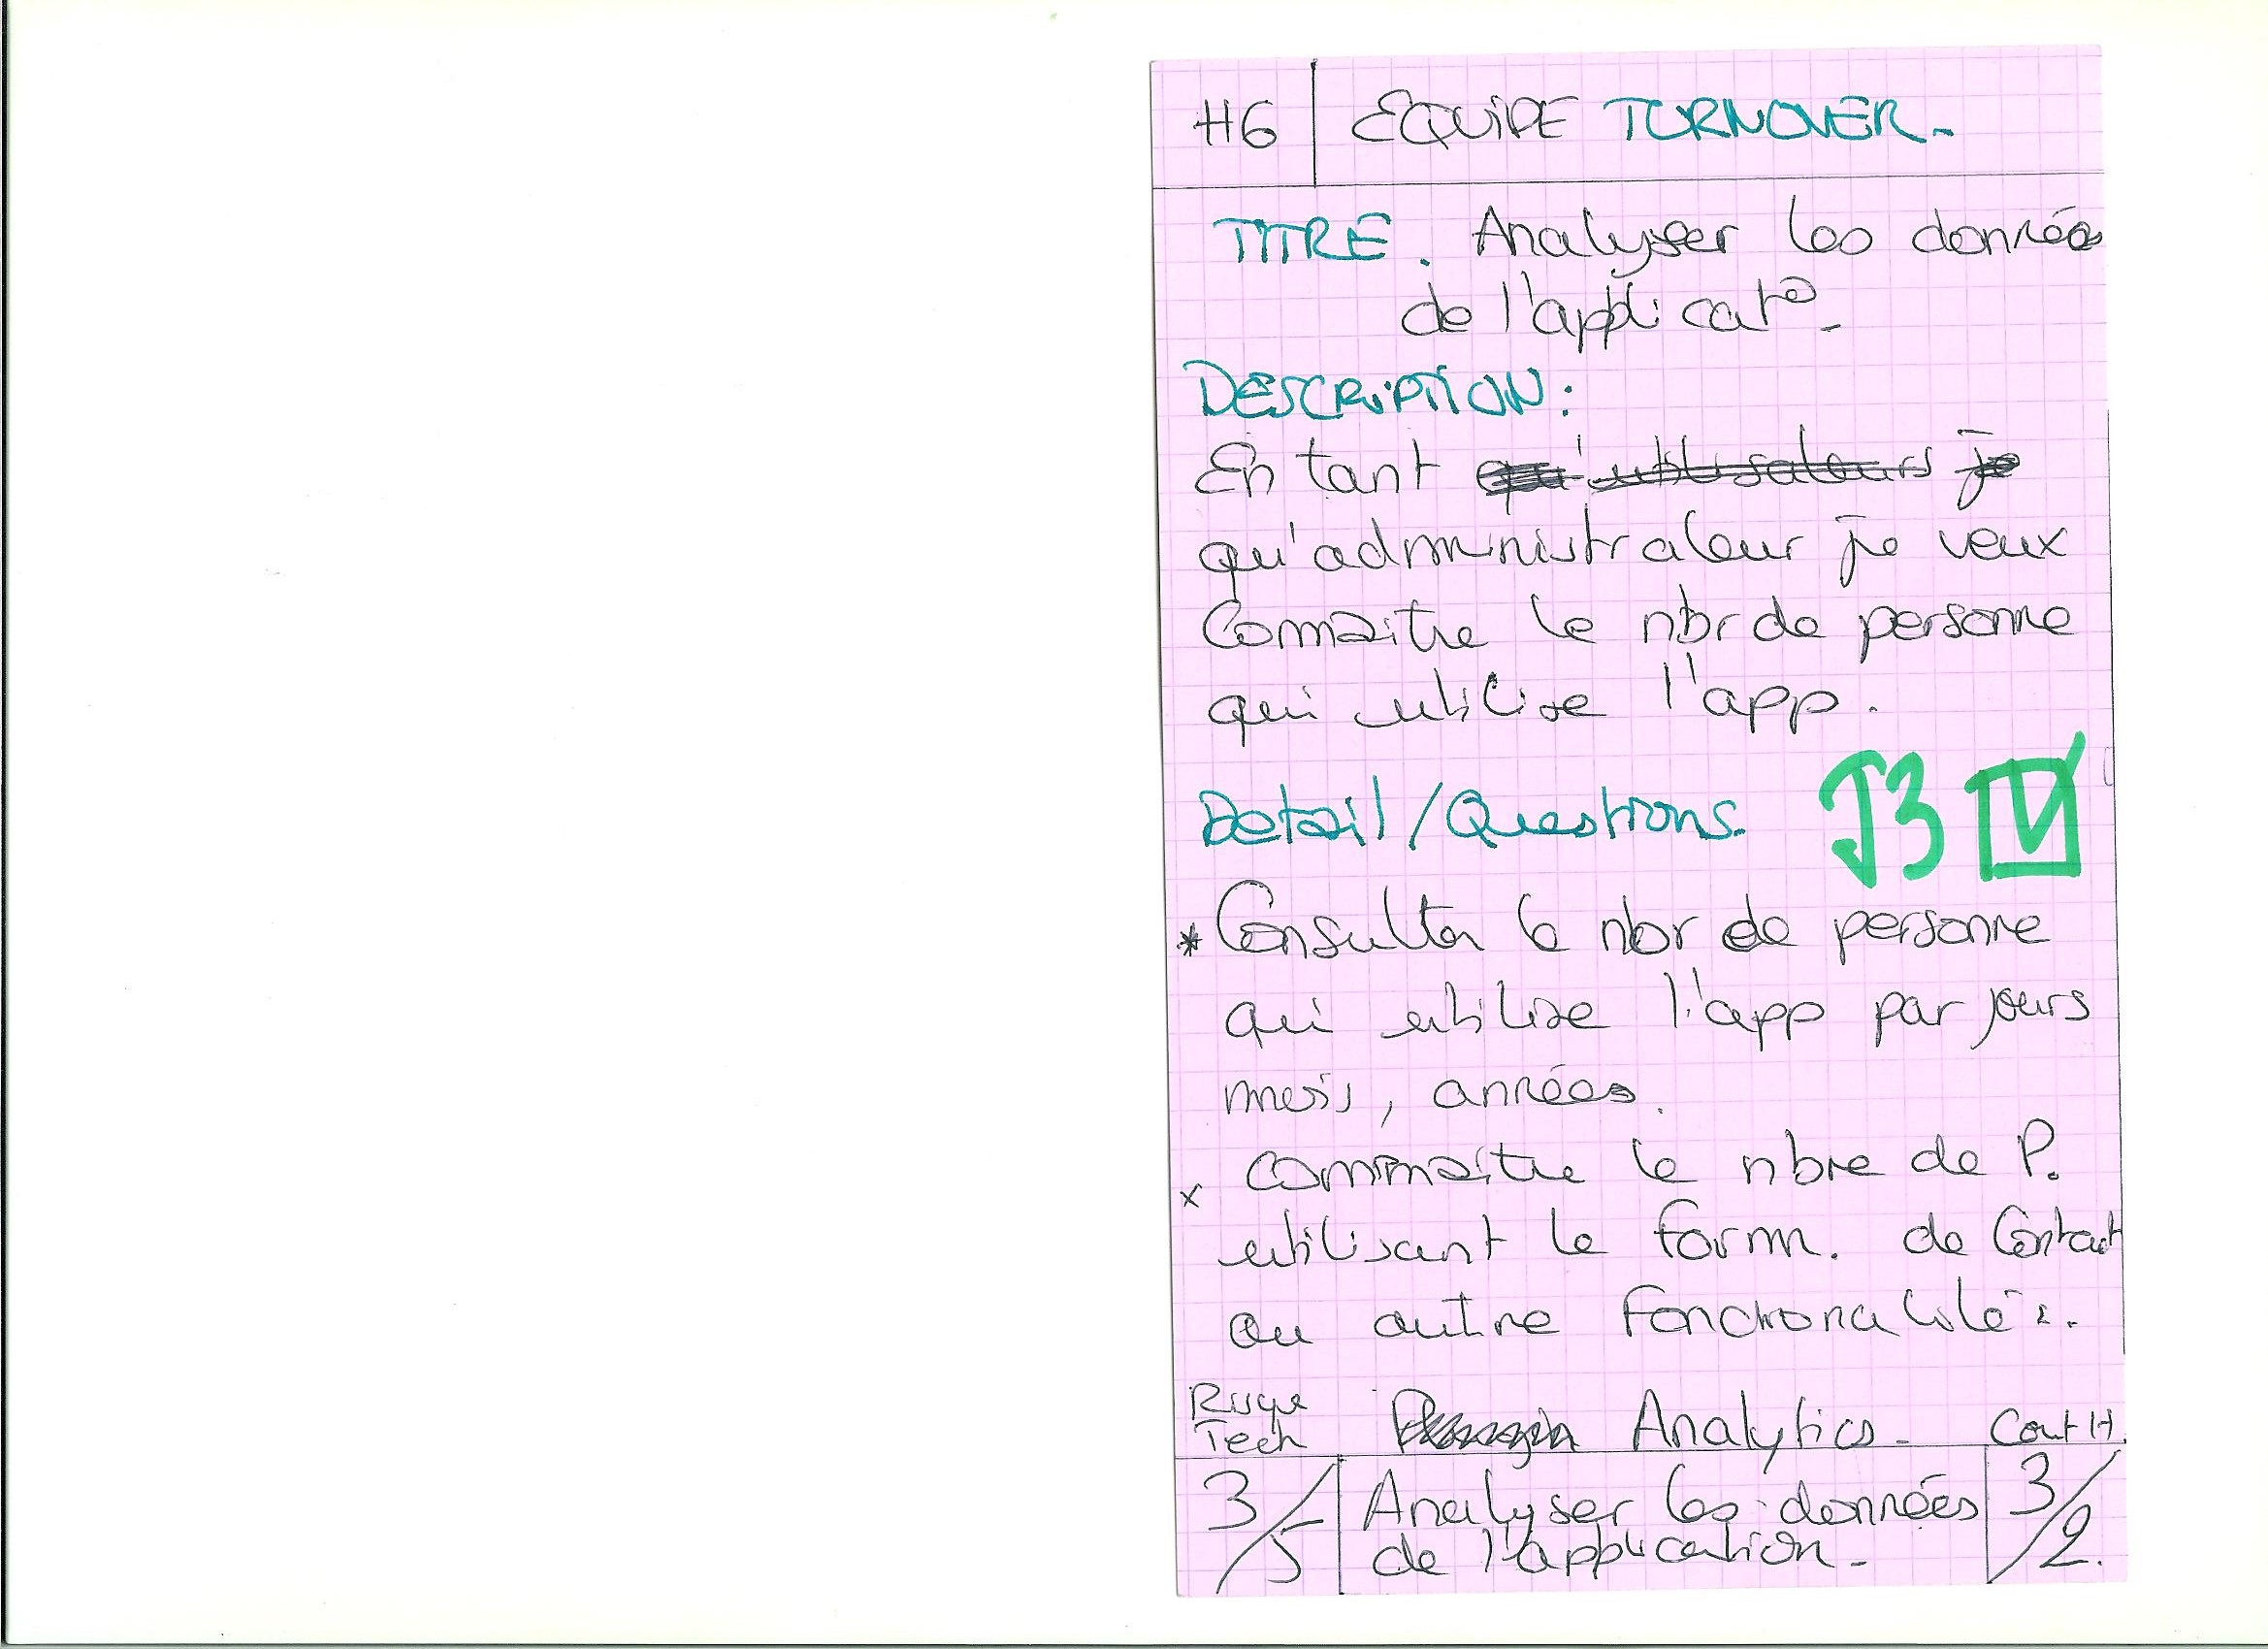 #6 EQUIPE TURNOVER-
TITRE. Analyser les données
de l'applicat°-
DESCRIPTION:
En tant qu'utilisateurs je
qu'administrateur je veux
Connaitre le nbr de personne
qui utilise l'app.
Detail/Questions. J3
* Consulter le nbr de personne
qui utilise l'app par jours
mois, années.
x connaitre le nbre de P.
utilisant le form. de Contact
ou autre fonctionalité :.
Risque
Tech Analytics- Cout H.
3/5 Analyser les données 3/2.
de l'application-